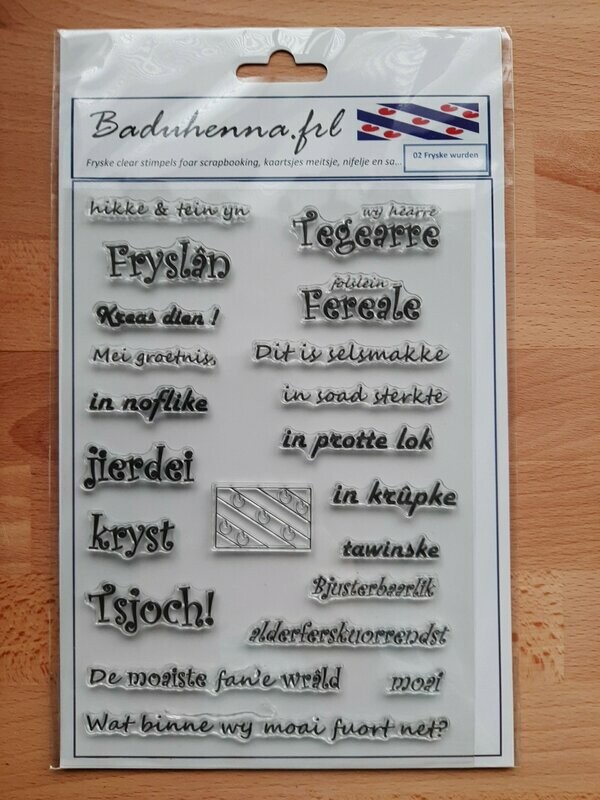 Baduhenna.frl
Fryske clear stimpels foar scrapbooking, kaartsjes meitsje, nifelje en sa...
02 Fryske wurden
hikke & tein yn
wy hearre
Tegearre
Fryslân
folslein
Fereale
Kreas dien !
Mei groetnis,
Dit is selsmakke
in noflike
in soad sterkte
in protte lok
jierdei
in krûpke
kryst
tawinske
Bjusterbaarlik
Tsjoch!
alderferskuorrendst
De moaiste fan'e wrâld
moai
Wat binne wy moai fuort net?